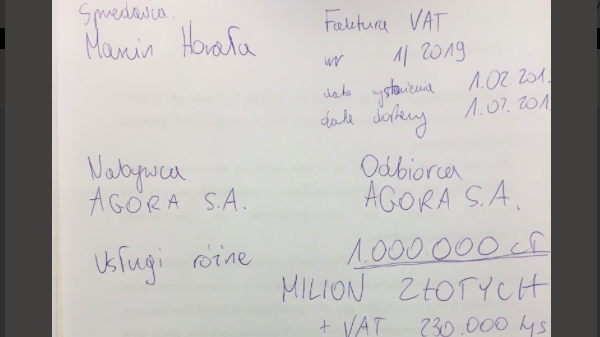 Sprzedawca.
Marcin Horała
Faktura VAT
nr 1/2019
data wystawienia 1.02.201
data dostawy 1.02.201
Nabywca
AGORA S.A.
Odbiorca
AGORA S.A.
Usługi różne 1.000000 zł
MILION ZŁOTYCH
+ VAT 230.000 tys